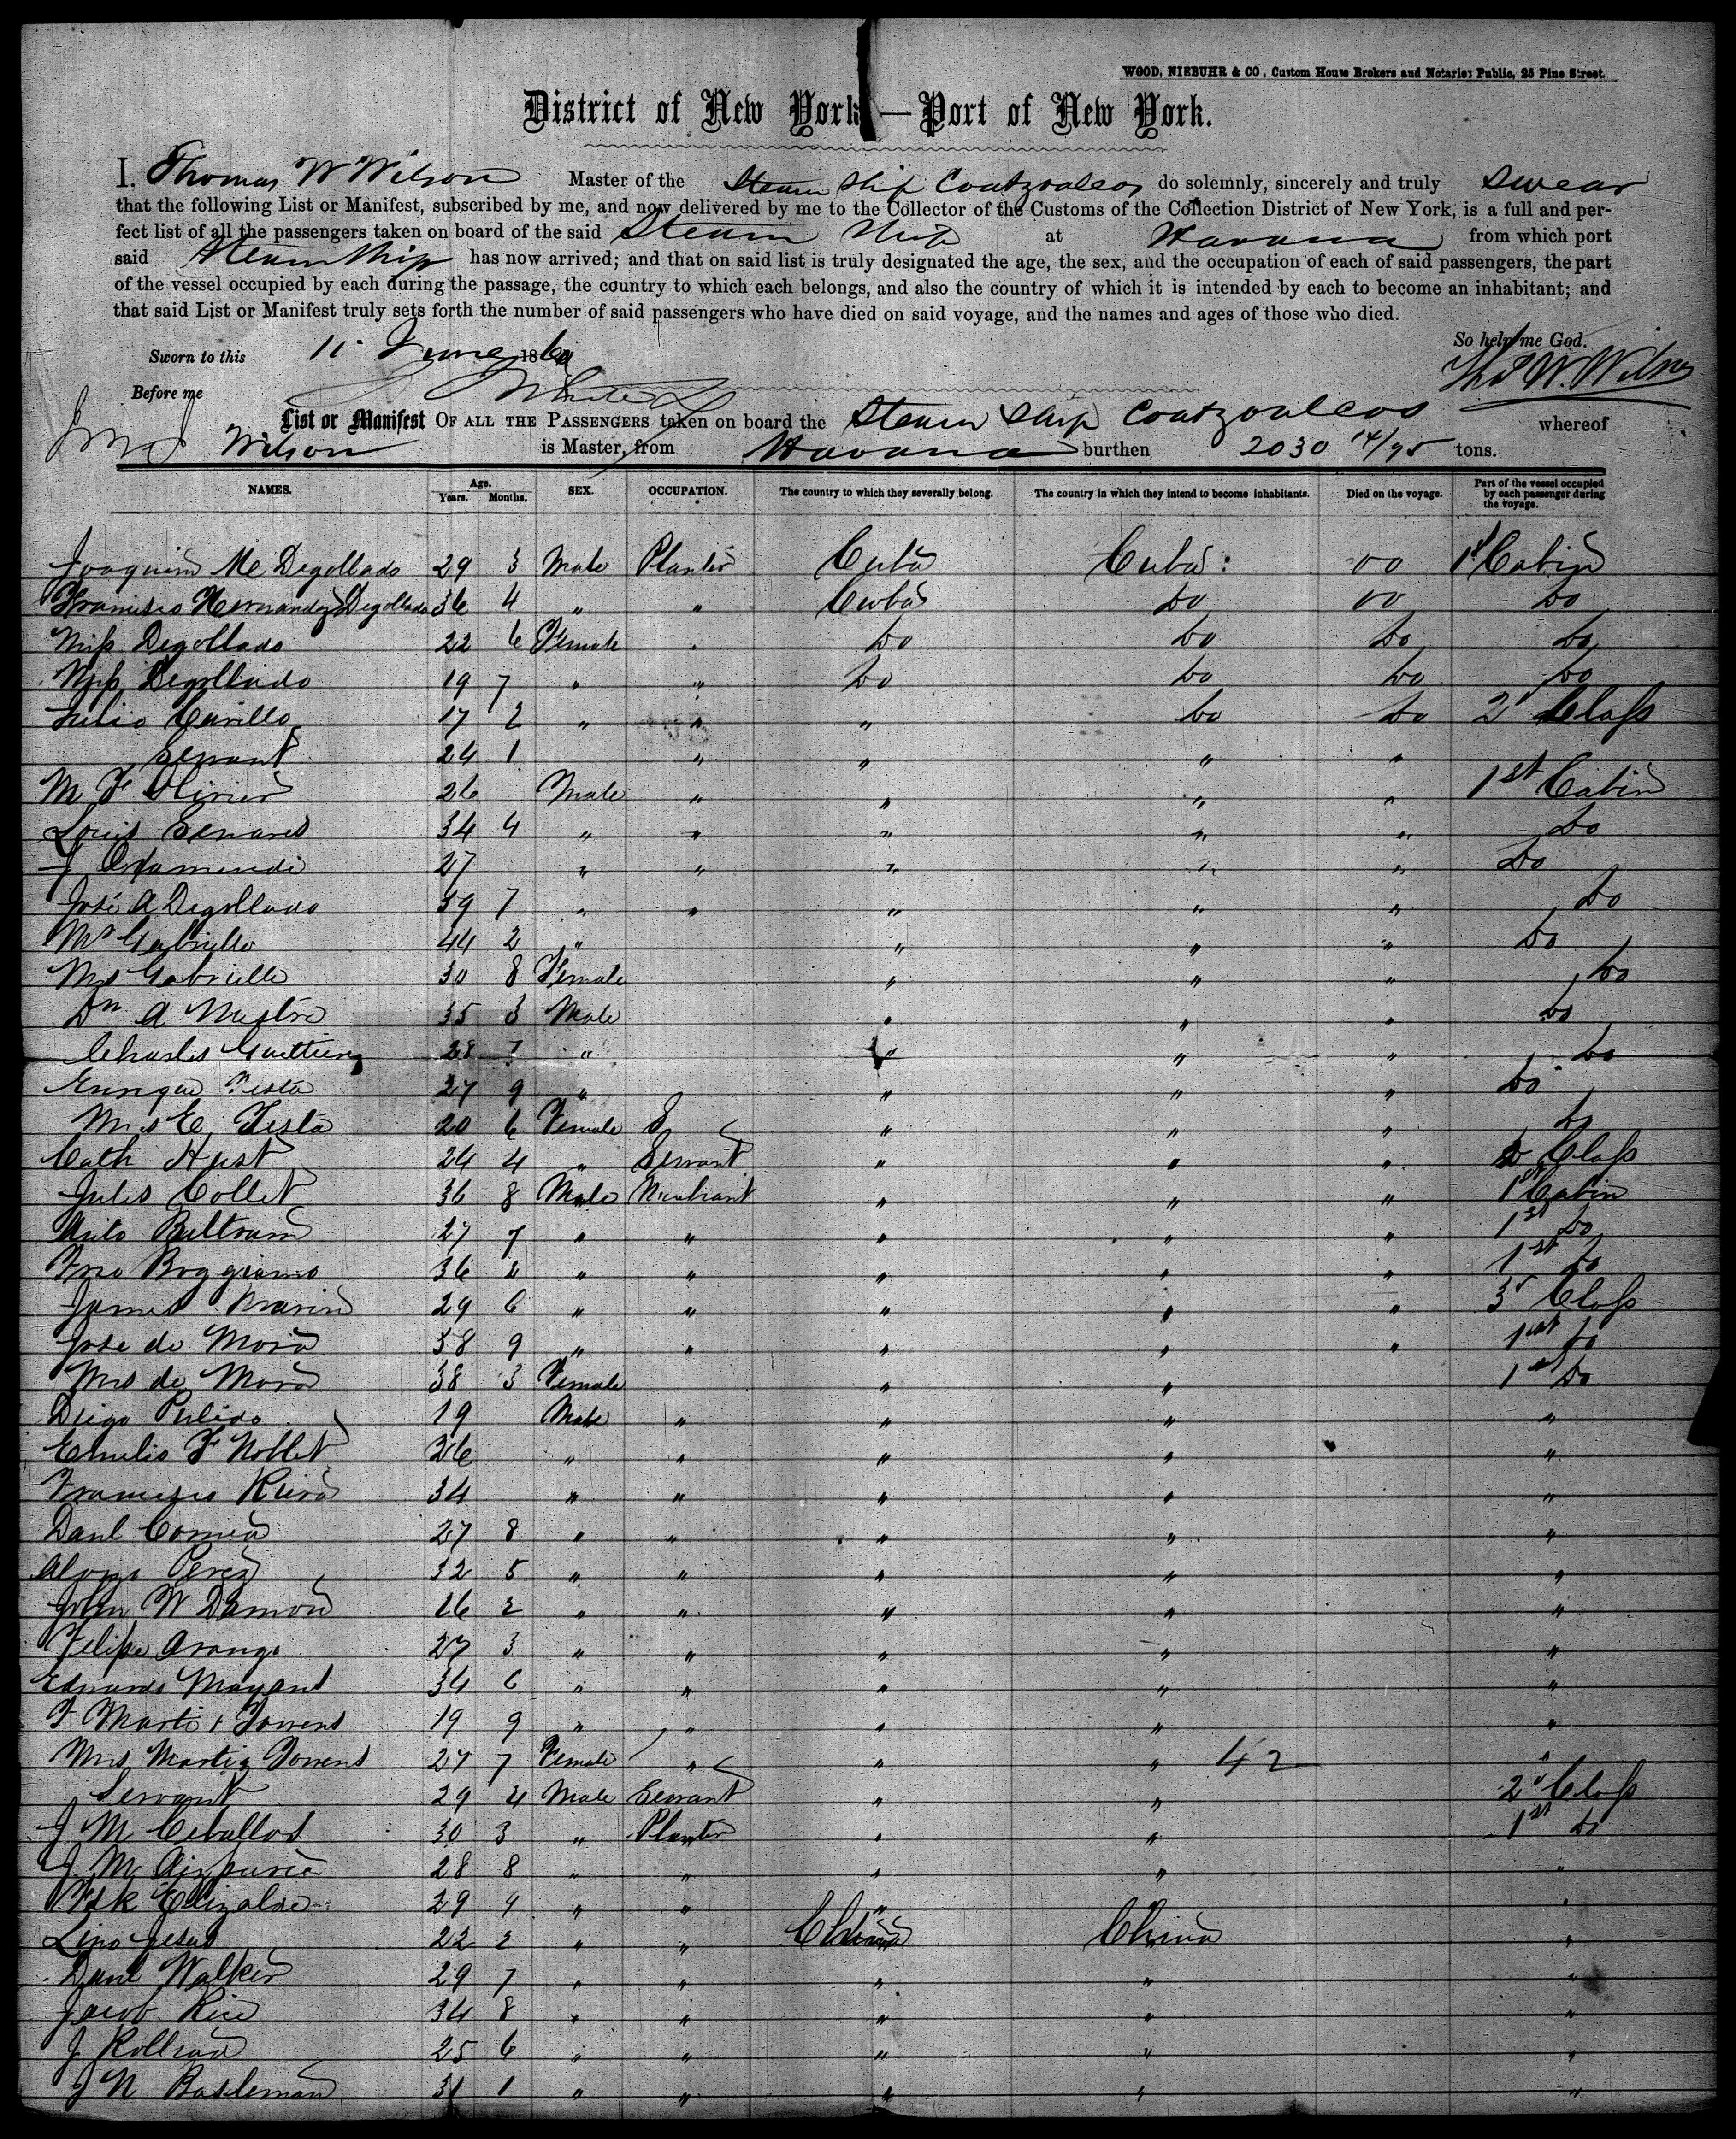 WOOD, NIEBUHR & CO., Custom House Brokers and Notaries Public, 25 Pine Street.
District of New York — Port of New York.
I, Thomas W Wilson Master of the Steam Ship Coatzoalcos do solemnly, sincerely and truly swear
that the following List or Manifest, subscribed by me, and now delivered by me to the Collector of the Customs of the Collection District of New York, is a full and per-
fect list of all the passengers taken on board of the said Steam Ship at Havana from which port
said Steam Ship has now arrived; and that on said list is truly designated the age, the sex, and the occupation of each of said passengers, the part
of the vessel occupied by each during the passage, the country to which each belongs, and also the country of which it is intended by each to become an inhabitant; and
that said List or Manifest truly sets forth the number of said passengers who have died on said voyage, and the names and ages of those who died.
So help me God.
Sworn to this 11 June 186
Thos W. Wilson
Before me
List or Manifest OF ALL THE PASSENGERS taken on board the Steam Ship Coatzoalcos whereof
Wilson is Master, from Havana burthen 2030 14/95 tons.
NAMES. Age. Years. Months. SEX. OCCUPATION. The country to which they severally belong. The country in which they intend to become inhabitants. Died on the voyage. Part of the vessel occupied by each passenger during the voyage.
Joaquin M Degollado 29 3 Male Planter Cuba Cuba: 00 1st Cabin
Francisco Hernandez Degollado 36 4 " " Cuba Do 00 Do
Miss Degollado 22 6 Female " Do Do Do Do
Miss Degollado 19 7 " " Do Do Do Do
Julio Carillo 17 2 " " " Do Do 2d Class
Servant 24 1 " " " "
M F Olivier 26 Male " " " " 1st Cabin
Louis 34 4 " " " " " Do
J 27 " " " " " Do
José A Degollado 39 7 " " " " " Do
Mr Gabrielle 44 2 " " " " Do
Mrs Gabrielle 30 8 Female " " " Do
Dn A Mestre 35 3 Male " " " Do
Charles 28 7 " " " " Do
Enrique Testa 27 9 " " " " Do
Mrs E Testa 20 6 Female S " " " Do
Cath Hust 24 4 " Servant " " " 2 Class
Jules Collet 36 8 Male Merchant " " " 1st Cabin
Beltram 27 7 " " " " " 1st Do
Boggiano 36 2 " " " " " 1st Do
James Marin 29 6 " " " " " 3d Class
Jose de Mora 38 9 " " " " " 1st Do
Mrs de Mora 38 3 Female " " 1st Do
Diego Pulido 19 Male " " " "
Emilio F Noblet 36 " " " " "
Francisco Riera 34 " " " " "
Danl Correa 27 8 " " " " "
Alonzo Perez 32 5 " " " " "
John W Damon 16 2 " " " " "
Felipe Arango 27 3 " " " " "
Eduardo Mayant 34 6 " " " " "
F Marti & Torrens 19 9 " " " " "
Mrs Marti & Torrens 27 7 Female " " " 42 "
Servant 29 4 Male Servant " " 2d Class
J M Ceballos 30 3 " Planter " " 1st Do
J M 28 8 " " " " "
Fdk Elizalde 29 4 " " " "
Lino Jesus 22 2 " " China China "
Danl Walker 29 7 " " " " "
Jacob Rice 34 8 " " " " "
J 25 6 " " " " "
J N Basleman 31 1 " " " " "